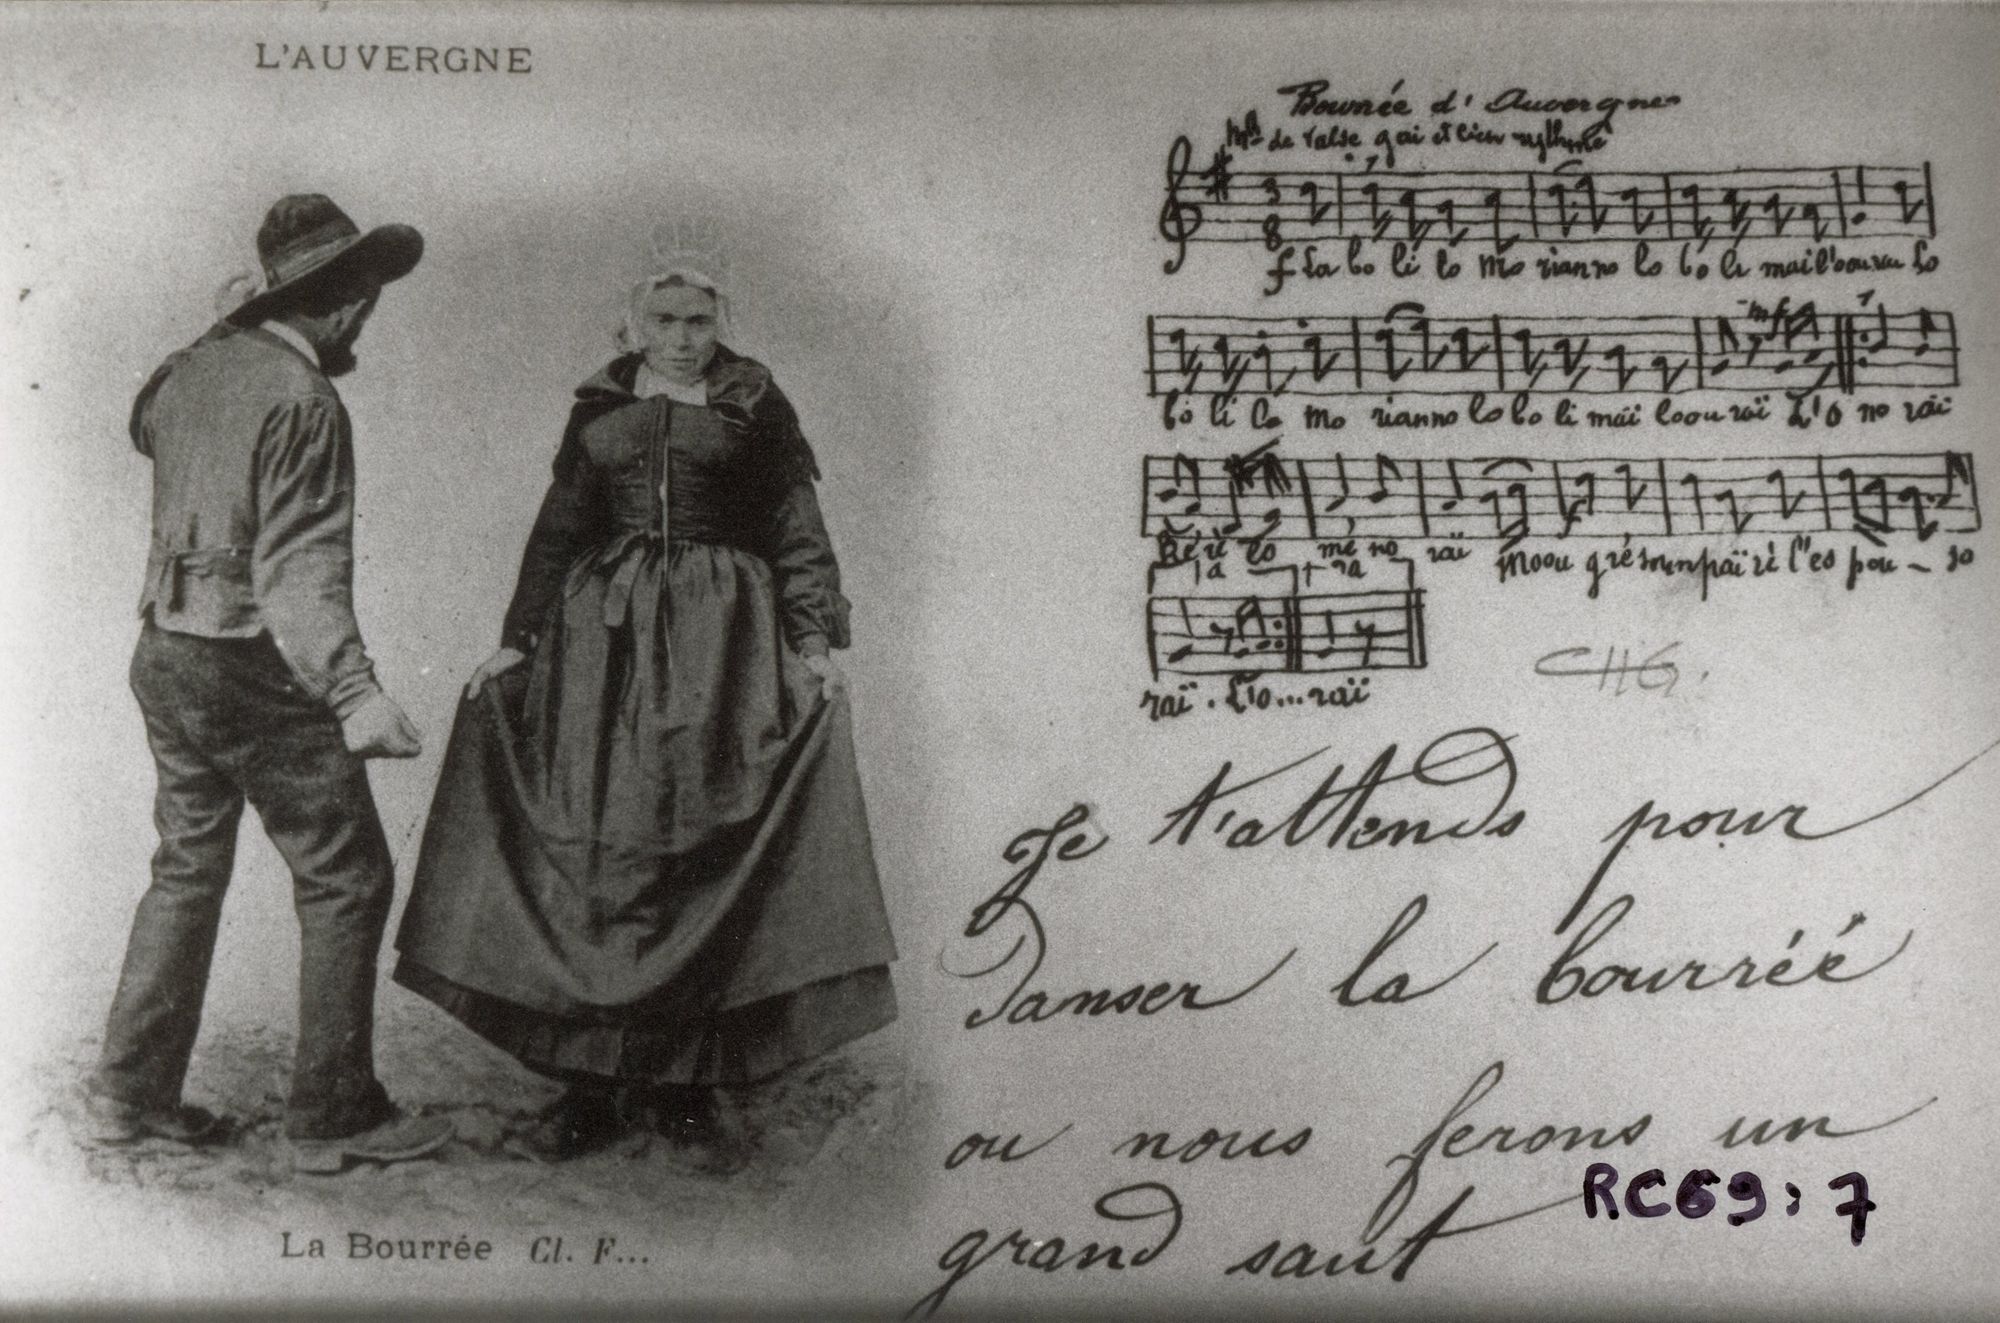 L'AUVERGNE
Bourrée d'Auvergne
Mt de valse gai et bien rythmé
3
8
f La bo li lo Mo rianno lo bo li mai l'oourau Lo
mf
bo li lo Mo rianno lo bo li maï loou raï L'o no raï
Ré ré lo mé no raï Moou gré soun païré l'es pou - so
1a 2a
f
raï . L'o... raï
CHG.
Je t'attends pour
danser la bourréé
ou nous ferons un
grand saut
RC69,7
La Bourrée Cl. F...